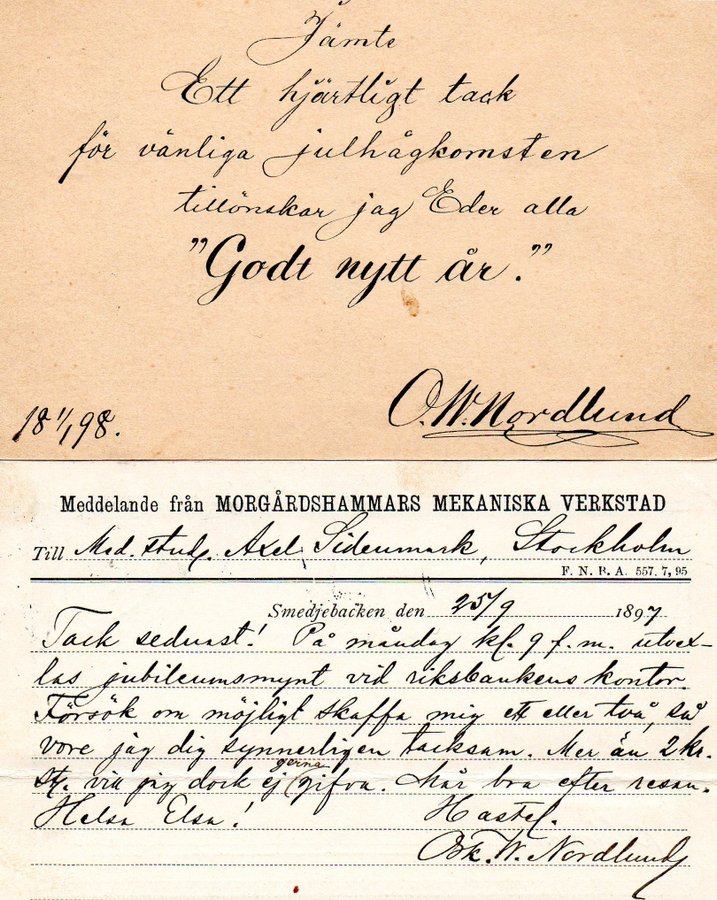 Jämte
Ett hjärtligt tack
för vänliga julhågkomsten
tillönskar jag Eder alla
"Godt nytt år."
18 1/1 98.
O.W. Nordlund
Meddelande från MORGÅRDSHAMMARS MEKANISKA VERKSTAD
Till Med. stud. Axel Sidenmark, Stockholm
F. N. B. A. 557. 7, 95
Smedjebacken den 25/9 1897
Tack sednast! På måndag kl. 9 f.m. utvex-
las jubileumsmynt vid riksbankens kontor.
Försök om möjligt skaffa mig ett eller två, så
vore jag dig synnerligen tacksam. Mer än 2 kr.
st. vill jag dock ej gerna gifva. Mår bra efter resan.
Helsa Elsa! Hastel.
Osk. W. Nordlund